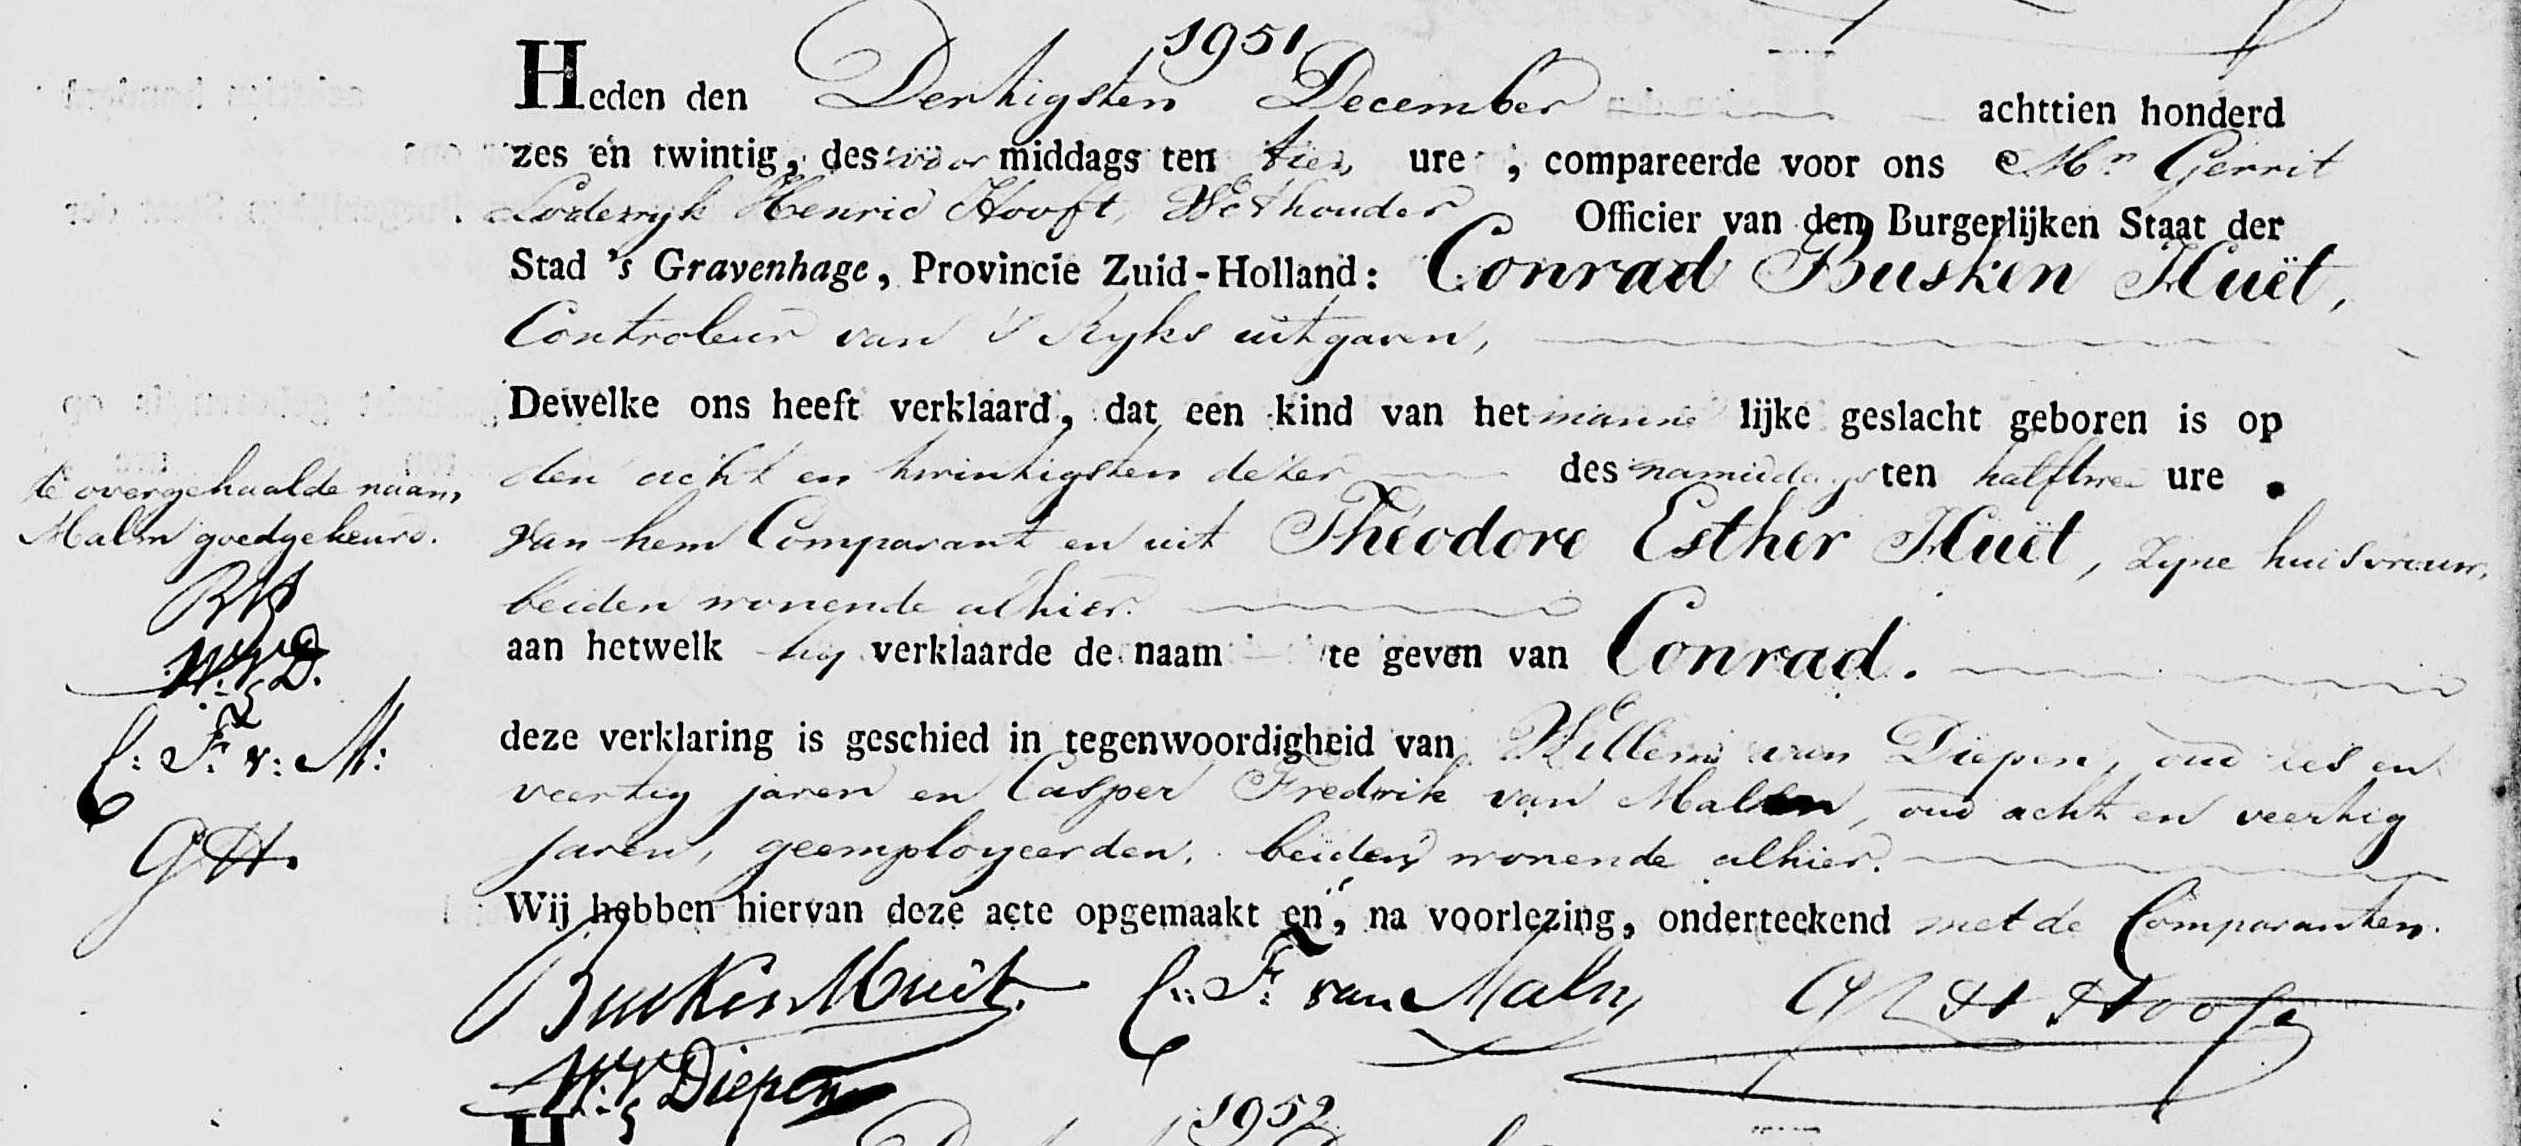 1951
Heden den Dertigsten December achttien honderd
zes en twintig, des voor middags ten tien ure, compareerde voor ons Mr. Gerrit
Loderryk Henric Hooft, Wethouder Officier van den Burgerlijken Staat der
Stad 's Gravenhage, Provincie Zuid-Holland: Conrad Busken Huët,
Controleur van 's Ryks uitgaven,
Dewelke ons heeft verklaard, dat een kind van het manne lijke geslacht geboren is op
den acht en twintigsten dezer des namiddags ten half twee ure.
van hem Comparant en uit Théodore Esther Huët, zyne huisvrouw,
beiden wonende alhier.
aan hetwelk hy verklaarde de naam te geven van Conrad.
deze verklaring is geschied in tegenwoordigheid van Willem van Diepen, oud zes en
veertig jaren en Casper Fredrik van Malm, oud acht en veertig
jaren, geemployeerden, beiden wonende alhier.
Wij hebben hiervan deze acte opgemaakt en, na voorlezing, onderteekend met de Comparanten.
Busken Huët. C: F: van Malm G L H Hooft
W. V. Diepen
de overgehaalde naam,
Malm goedgekeurd.
BH
W. V. D.
C: F: v: M:
GH.
1952